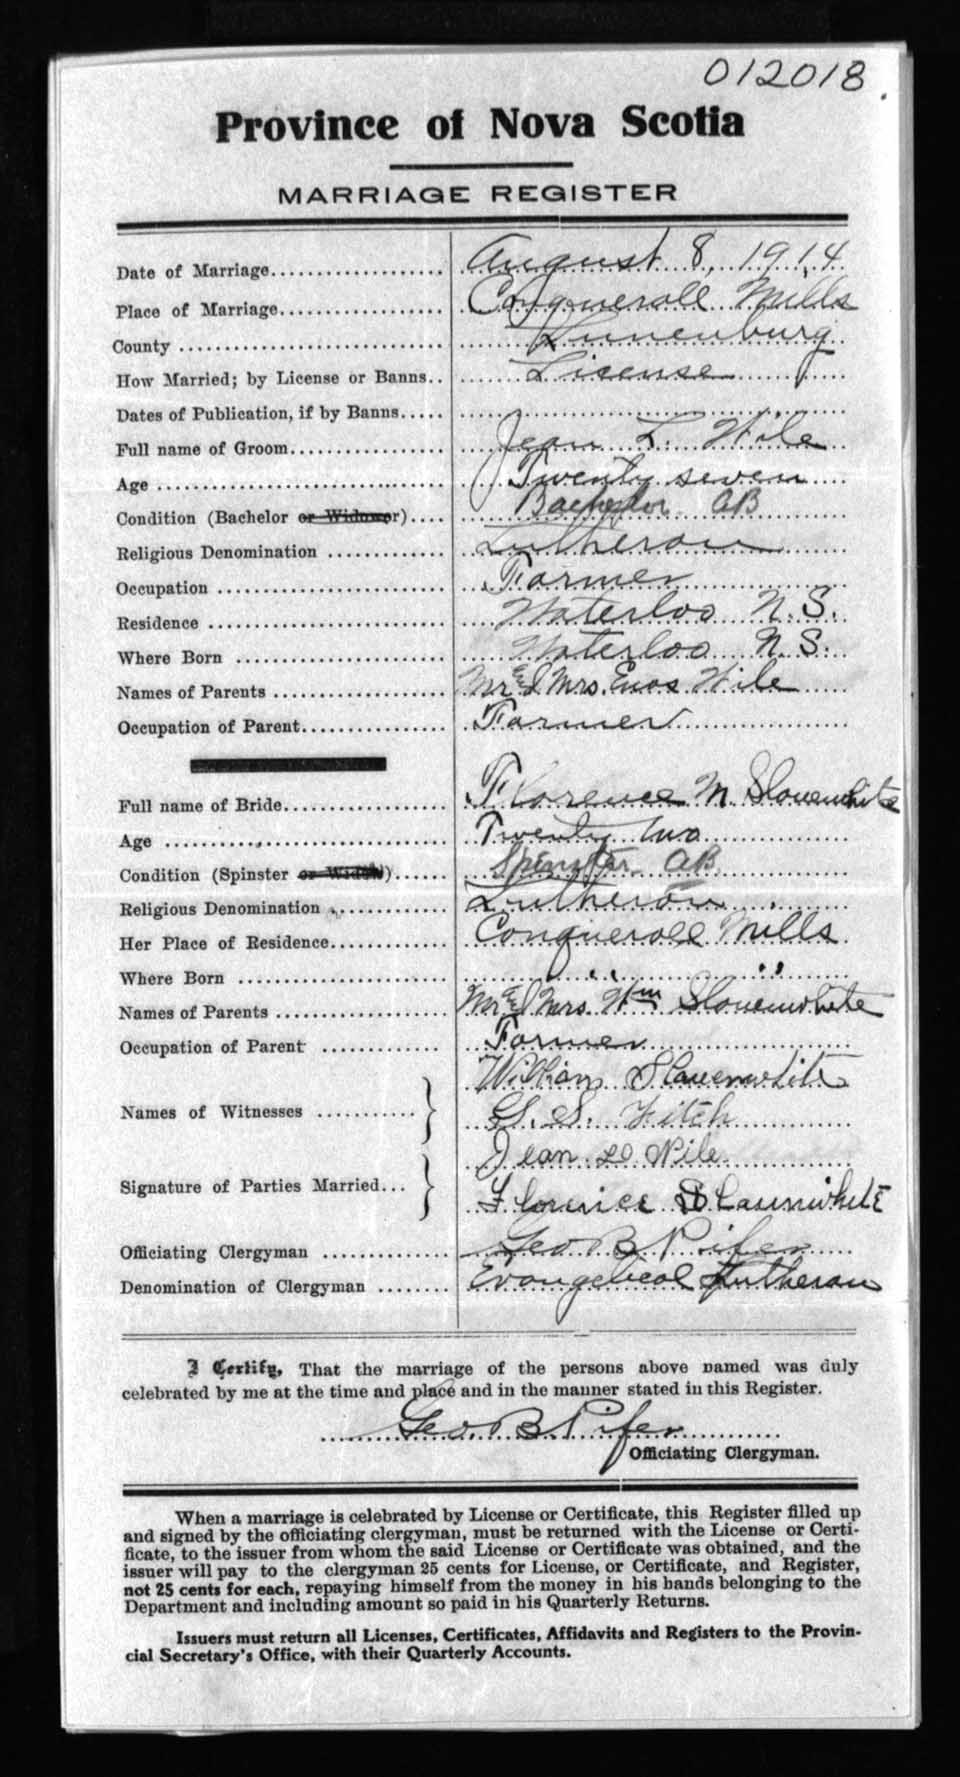 012018.
Province of Nova Scotia
MARRIAGE REGISTER
Date of Marriage.................... August 8, 1914
Place of Marriage.................. Conquerall Mills
County .............................. Lunenburg
How Married; by License or Banns.. License
Dates of Publication, if by Banns.....
Full name of Groom.................. Jean L. Wile
Age ................................ Twenty seven
Condition (Bachelor or Widower).... Bachelor AB
Religious Denomination ............. Lutheran
Occupation .......................... Farmer
Residence ........................... Waterloo N.S.
Where Born ........................ Waterloo N.S.
Names of Parents .................... Mr and Mrs. Enos Wile
Occupation of Parent................. Farmer
Full name of Bride................... Florence M Slauenwhite
Age ................................ Twenty two
Condition (Spinster or Widow)...... Spinster AB
Religious Denomination ............. Lutheran
Her Place of Residence............. Conquerall Mills
Where Born ........................ " "
Names of Parents .................... Mr and Mrs. Wm Slauenwhite
Occupation of Parent .............. Farmer
William Slauenwhite
Names of Witnesses ...........
G. S. Fitch
Jean L Wile
Signature of Parties Married...
Florence Slaunwhite
Officiating Clergyman .............. Geo B Pifer
Denomination of Clergyman ........ Evangelical Lutheran
I Certify, That the marriage of the persons above named was duly
celebrated by me at the time and place and in the manner stated in this Register.
Geo. B Pifer
Officiating Clergyman.
When a marriage is celebrated by License or Certificate, this Register filled up
and signed by the officiating clergyman, must be returned with the License or Certi-
ficate, to the issuer from whom the said License or Certificate was obtained, and the
issuer will pay to the clergyman 25 cents for License, or Certificate, and Register,
not 25 cents for each, repaying himself from the money in his hands belonging to the
Department and including amount so paid in his Quarterly Returns.
Issuers must return all Licenses, Certificates, Affidavits and Registers to the Provin-
cial Secretary's Office, with their Quarterly Accounts.